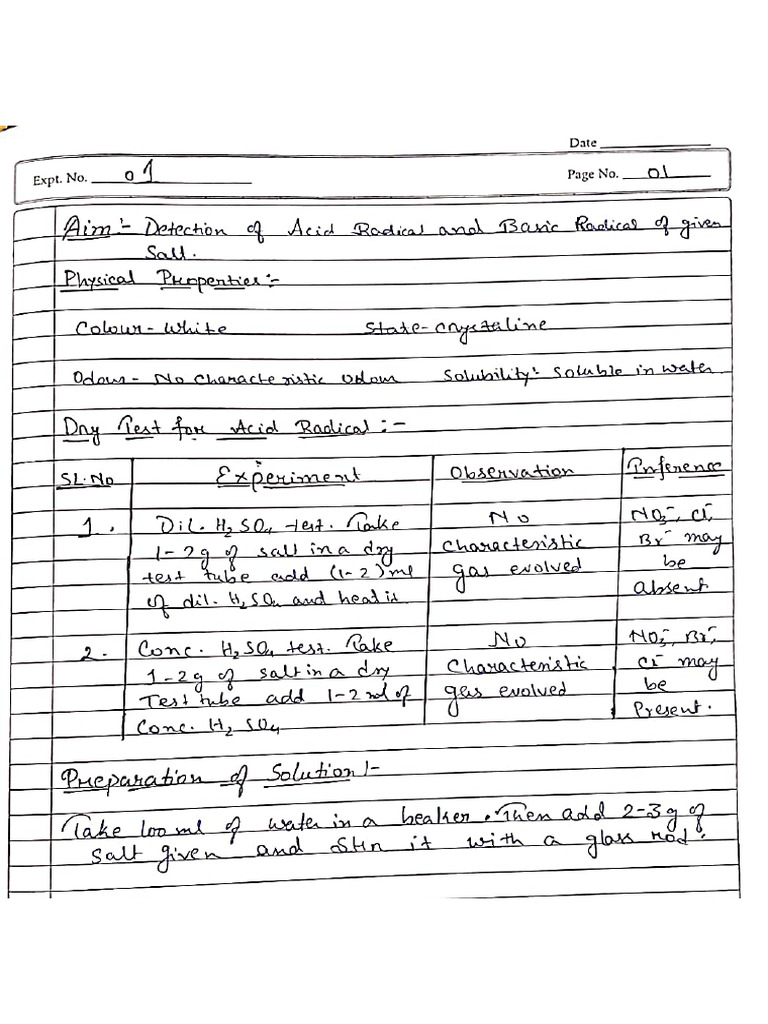 Date
Expt. No. 01
Page No. 01
Aim:- Detection of Acid Radical and Basic Radical of given
Salt.
Physical Properties:-
Colour- White State- Crystalline
Odour - No characteristic Odour Solubility:- Soluble in water
Dry Test for Acid Radical:-
SL.No Experiment Observation Inference
1. Dil. H₂SO₄ test. Take No NO₂⁻, Cl⁻,
1-2g of salt in a dry Characteristic Br⁻ may
test tube add (1-2)ml gas evolved be
of dil. H₂SO₄ and heat it absent
2. Conc. H₂SO₄ test. Take No NO₃⁻, Br⁻,
1-2g of salt in a dry Characteristic Cl⁻ may
Test tube add 1-2 ml of gas evolved be
Conc. H₂SO₄ Present.
Preparation of Solution:-
Take 100ml of water in a beaker. Then add 2-3g of
salt given and stir it with a glass rod.